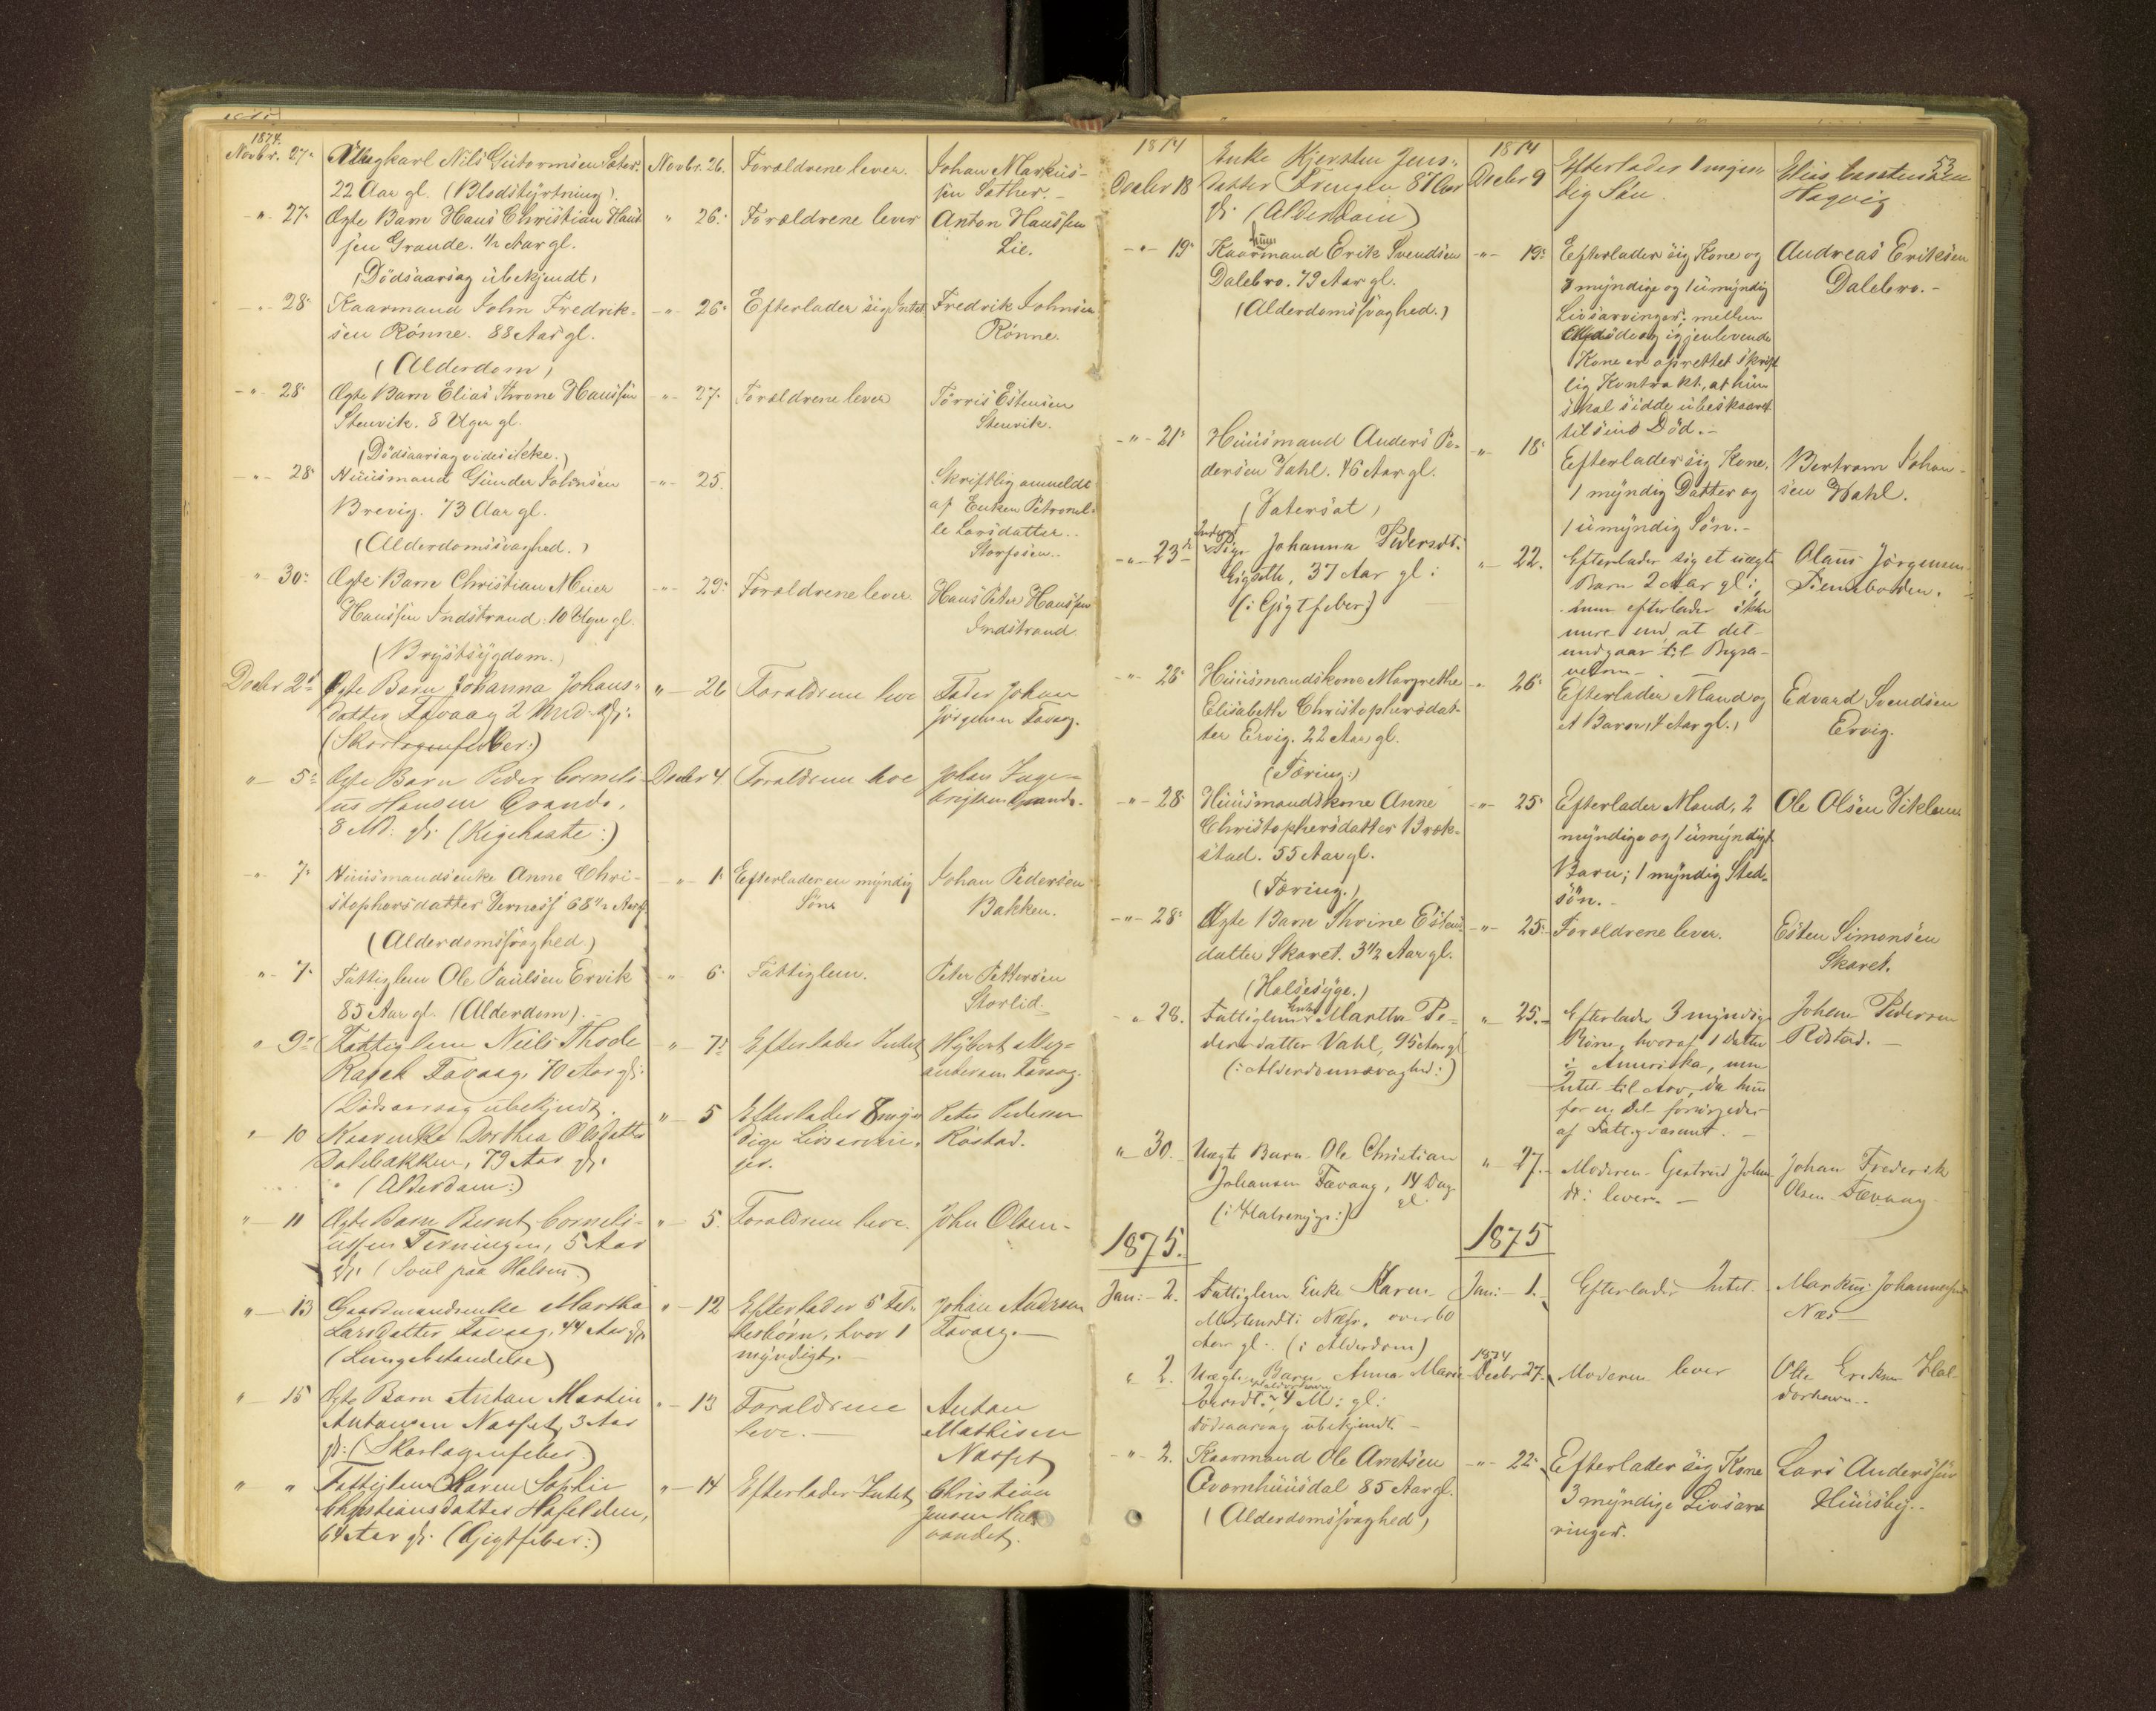 1874.
Novbr. 27. Ungkarl Nils Guttormsen Sæter. Novbr. 26. Forældrene lever. Johan Markus-
22 Aar gl. (Blodstyrtning). sen Sæther.
-"- 27. Ægte Barn Hans Christian Hans " 26. Forældrene lever Anton Hanssen
sen Grande. 1/2 Aar gl. Lie.
(Dødsaarsag ubekjendt)
-"- 28. Kaarmand John Fredrik- -"- 26. Efterlader sig Intet Fredrik Johnsen
sen Rønne. 88 Aar gl. Rønne.
(Alderdom)
-"- 28 Ægte Barn Elias Throne Hanssen -"- 27. Forældrene lever Tørris Estensen
Stenvik. 8 Uger gl. Stenvik.
(Dødsaarsag vides ikke.)
-"- 28 Huusmand Gunder Johnsen -"- 25. Skriftlig anmeldt
Brevig. 73 Aar gl. af Enken Petronel-
(Alderdomssvaghed.) le Larsdatter..
Storfosen..
" 30. Ægte Barn Christian Meier -"- 29. Forældrene lever. Hans Peter Hanssen
Hanssen Indstrand. 10 Uger gl. Indstrand
(Brystsygdom.)
Decbr 2. Ægte Barn Johanna Johans- " 26 Forældrene leve Fader Johan
datter Tavaag 2 Md. gl. Jörgensen Tavaag.
(Skarlagensfeber:)
" 5. Ægte Barn Peder Corneli- Decbr 4 Forældrene leve Johan Inge-
us Hansen Grande, brigtsen Grande.
8 Md. gl. (Kighoste:)
-"- 7. Huusmandsenke Anne Chri- -"- 1. Efterlader en myndig Johan Pedersen
stophersdatter 68 1/2 Aar gl. Søn Bakken.
(Alderdomssvaghed.)
" 7. Fattiglem Ole Paulsen Ervik -"- 6. Fattiglem. Peter Pettersen
85 Aar gl. (Alderdom). Storlid.
" 9. Fattiglem Niels Thode " 7. Efterlader Intet
Tavaag, 70 Aar gl. Tavaag.
(Dødsaarsag ubekjendt.
" 10 Kaarenke Dorthea Olsdatter " 5 Efterlader 8 myn- Peter Pedersen
Dalebakken, 79 Aar gl. dige Livsarvin- Röstad.
(Alderdom:) ger.
" 11 Ægte Barn Bernt Corneli- " 5. Forældrene leve. John Olsen
ussen Terningen, 5 Aar
gl. (Svul paa Halsen.)
" 13 Gaardmandsenke Martha " 12 Efterlader 5 Fæl- Johan Andersen
Larsdatter Tavaag, 44 Aar gl. lesbörn, hvor 1 Tavaag.
(Lungebetændelse) myndigt.
" 15 Ægte Barn Anton Martin " 13 Forældrene Anton
Antonsen Nasset, 3 Aar leve. Mathisen
gl: (Skarlagensfeber) Nasset
" " Fattiglem Karen Sophie " 14 Efterlader Intet Christian
Christiansdatter 64 Aar gl. (Gigtfeber:) Jensen
vandet.
53
1874 1874
Decbr 18 Enke Kjersten Jens- Decbr 9 Efterlader 1 myn- Elias Carstensen
datter 87 Aar dig Søn. Hagvig
gl. (Alderdom)
-"- 19 Kaarmand Erik Svendsen -"- 19. Efterlader sig Kone og Andreas Eriksen
Dalebro. 79 Aar gl. 3 myndige og 1 umyndig Dalebro.-
(Alderdomssvaghed.) Livsarvinger; mellem
Afdøde og igjenlevende
Kone er oprettet skrift
lig Kontrakt, at hun
skal sidde ubeskaaret
til sin Død.-
-"- 21. Huusmand Anders Pe- " 18. Efterlader sig Kone, Bertram Johan-
dersen Vahl. 46 Aar gl. 1 myndig Datter og sen Wahl.
(Vatersot) 1 umyndig Søn.-
-"- 23 Pige Johanna Pedersdt. " 22. Efterlader sig et uægte Olaus Jørgensen
37 Aar gl: Barn 2 Aar gl;
(:Gigtfeber:) men efterlader ikke
mere end at det
medgaar til Begra-
velsen.
-"- 28. Huusmandskone Margrethe " 26. Efterlader Mand og Edvard Svendsen
Elisabeth Christophersdat- et Barn, 4 Aar gl., Ervig.
ter Ervig. 22 Aar gl.
(Tæring:)
-"- 28 Huusmandskone Anne -"- 25 Efterlader Mand, 2 Ole Olsen
Christophersdatter Bræk- myndige og 1 umyndigt
stad. 55 Aar gl. Barn; 1 myndig Sted-
(Tæring.) søn.-
-"- 28. Ægte Barn Thrine Estens- -"- 25. Forældrene lever. Esten Simonsen
datter Skaret. 3 1/2 Aar gl. Skaret.
(Halsesyge.)
" 28. Fattiglem Enke Martha Pe- " 25. Efterlader 3 myndige Johan Pedersen
dersdatter Vahl, 95 Aar gl Børn, hvoraf 1 Datter Röstad.
(:Alderdomssvaghed:) i Amerika, men
Intet til Arv, da hun
for en Del forsörgedes
af Fattigvæsenet.
" 30. Uægte Barn Ole Christian " 27. Moderen Gertrud Johns Johan Frederik
Johansen Tævaag, 14 Dag dt: lever.- Olsen Tævaag
gl (:Halsesyge:)
1875. 1875
Jan: 2. Fattiglem Enke Karen Jan: 1. Efterlader Intet. Markus Johannessen
Mortensdt: Næss. over 60 Næs
Aar gl. (:Alderdom)
1874
" 2. Uægte Barn Anna Marie Decbr 27. Moderen lever Otte Eriksen Hal-
4 M: gl: dorhavn..
Dødsaarsag ubekjendt.-
-"- 2. Kaarmand Ole Arntsen -"- 22. Efterlader sig Kone Lars Anderssen
Qvernhuusdal 85 Aar gl. 3 myndige Livsar- Huusby..
(Alderdomssvaghed) vinger.